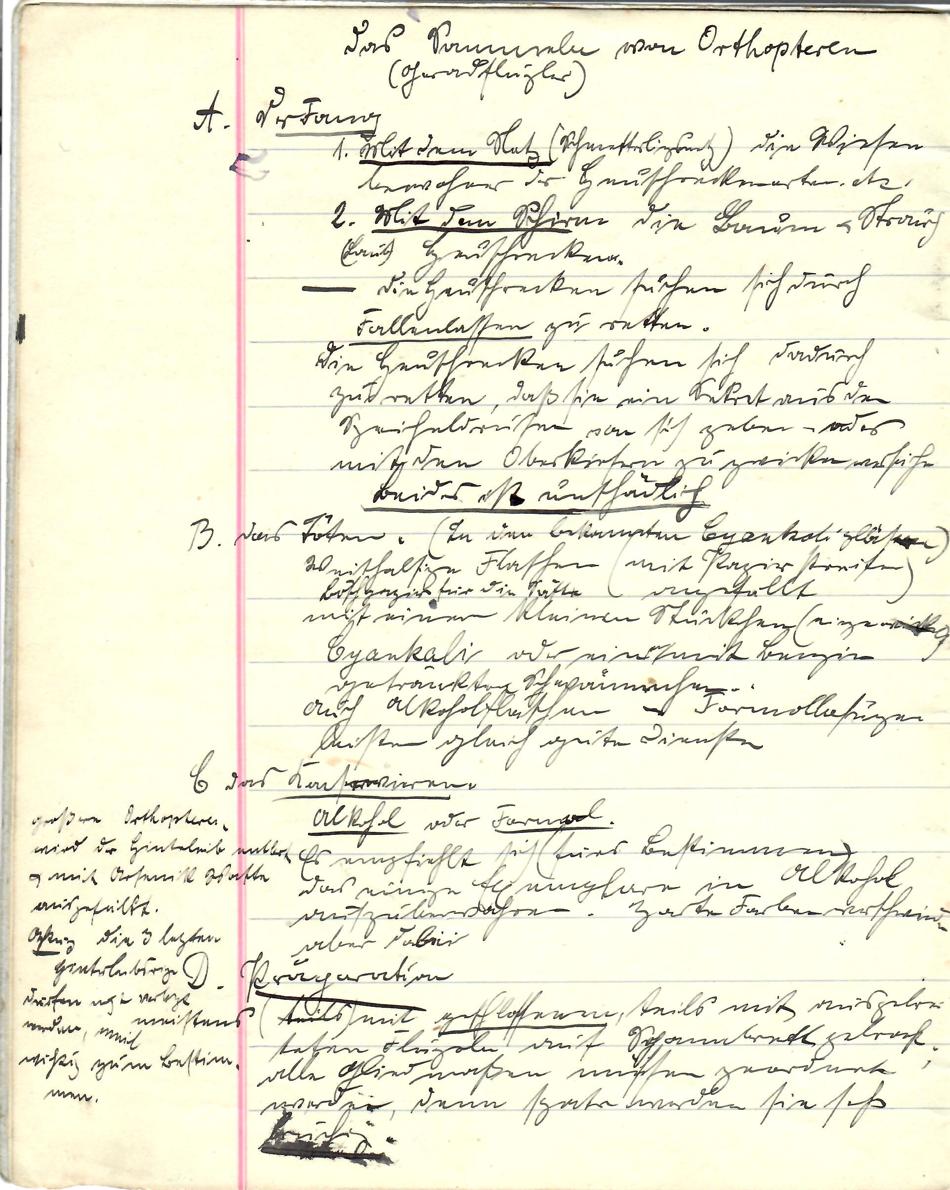 Das Sammeln von Orthopteren
(Geradflügler)
A. Der Fang
1. Mit dem Netz (Schmetterlingsnetz) die Wiesen
bewohner der Heuschreckenarten. etc.
2. Mit dem Schirm die Baum & Strauch
(Laub) Heuschrecken.
— die Heuschrecken suchen sich durch
Fallenlassen zu retten.
Die Heuschrecken suchen sich dadurch
zu retten, daß sie ein Sekret aus den
Speicheldrüsen von sich geben – oder
mit den Oberkiefern zu zwicken versuchen
beides ist unschädlich
B. das Töten. (In den bekannten Cyankaligläsern)
Weithalsige Flaschen (mit Papierstreifen)
Löschpapier für die Säfte angefüllt
mit einem kleinen Stückchen
Cyankali oder einem mit Benzin
getränkten Schwämmchen.
auch Alkoholflaschen – Formollösungen
leisten gleich gute Dienste
C das Konservieren.
Alkohol oder Formol.
Es empfiehlt sich (fürs Bestimmen)
das einige Exemplare in Alkohol
aufzubewahren. Zarte Farben verschwinden
aber dabei
größere Orthopteren,
wird der Hinterleib entleert
& mit Arsenik Watte
ausgefüllt.
Achtung die 3 letzten
Hinterleibringe
dürfen nie verletzt
werden, weil meistens
wichtig zum Bestim-
men.
D. Präparation
(teils) mit geschlossenen, teils mit ausgebrei
teten Flügeln auf Spannbrett gebracht.
alle Gliedmaßen müssen geordnet
werden, denn später werden sie sehr
brüchig